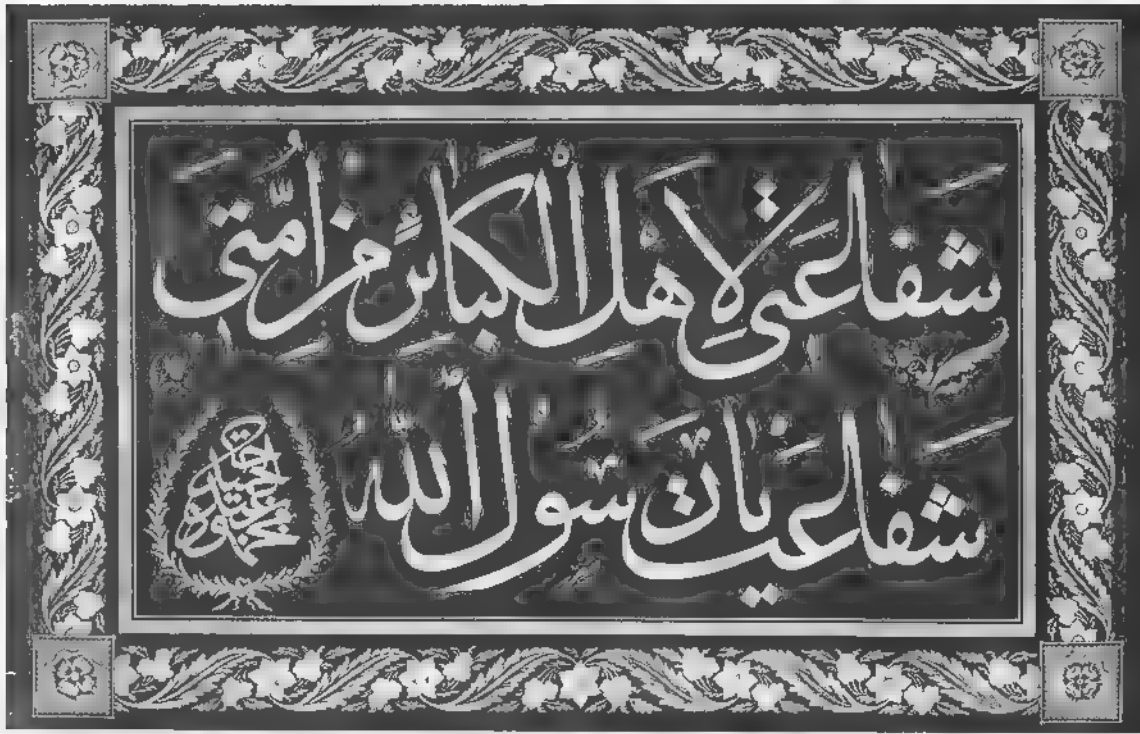 شفاعتى لاهل الكبائر من امتى
شفاعت يا رسول الله